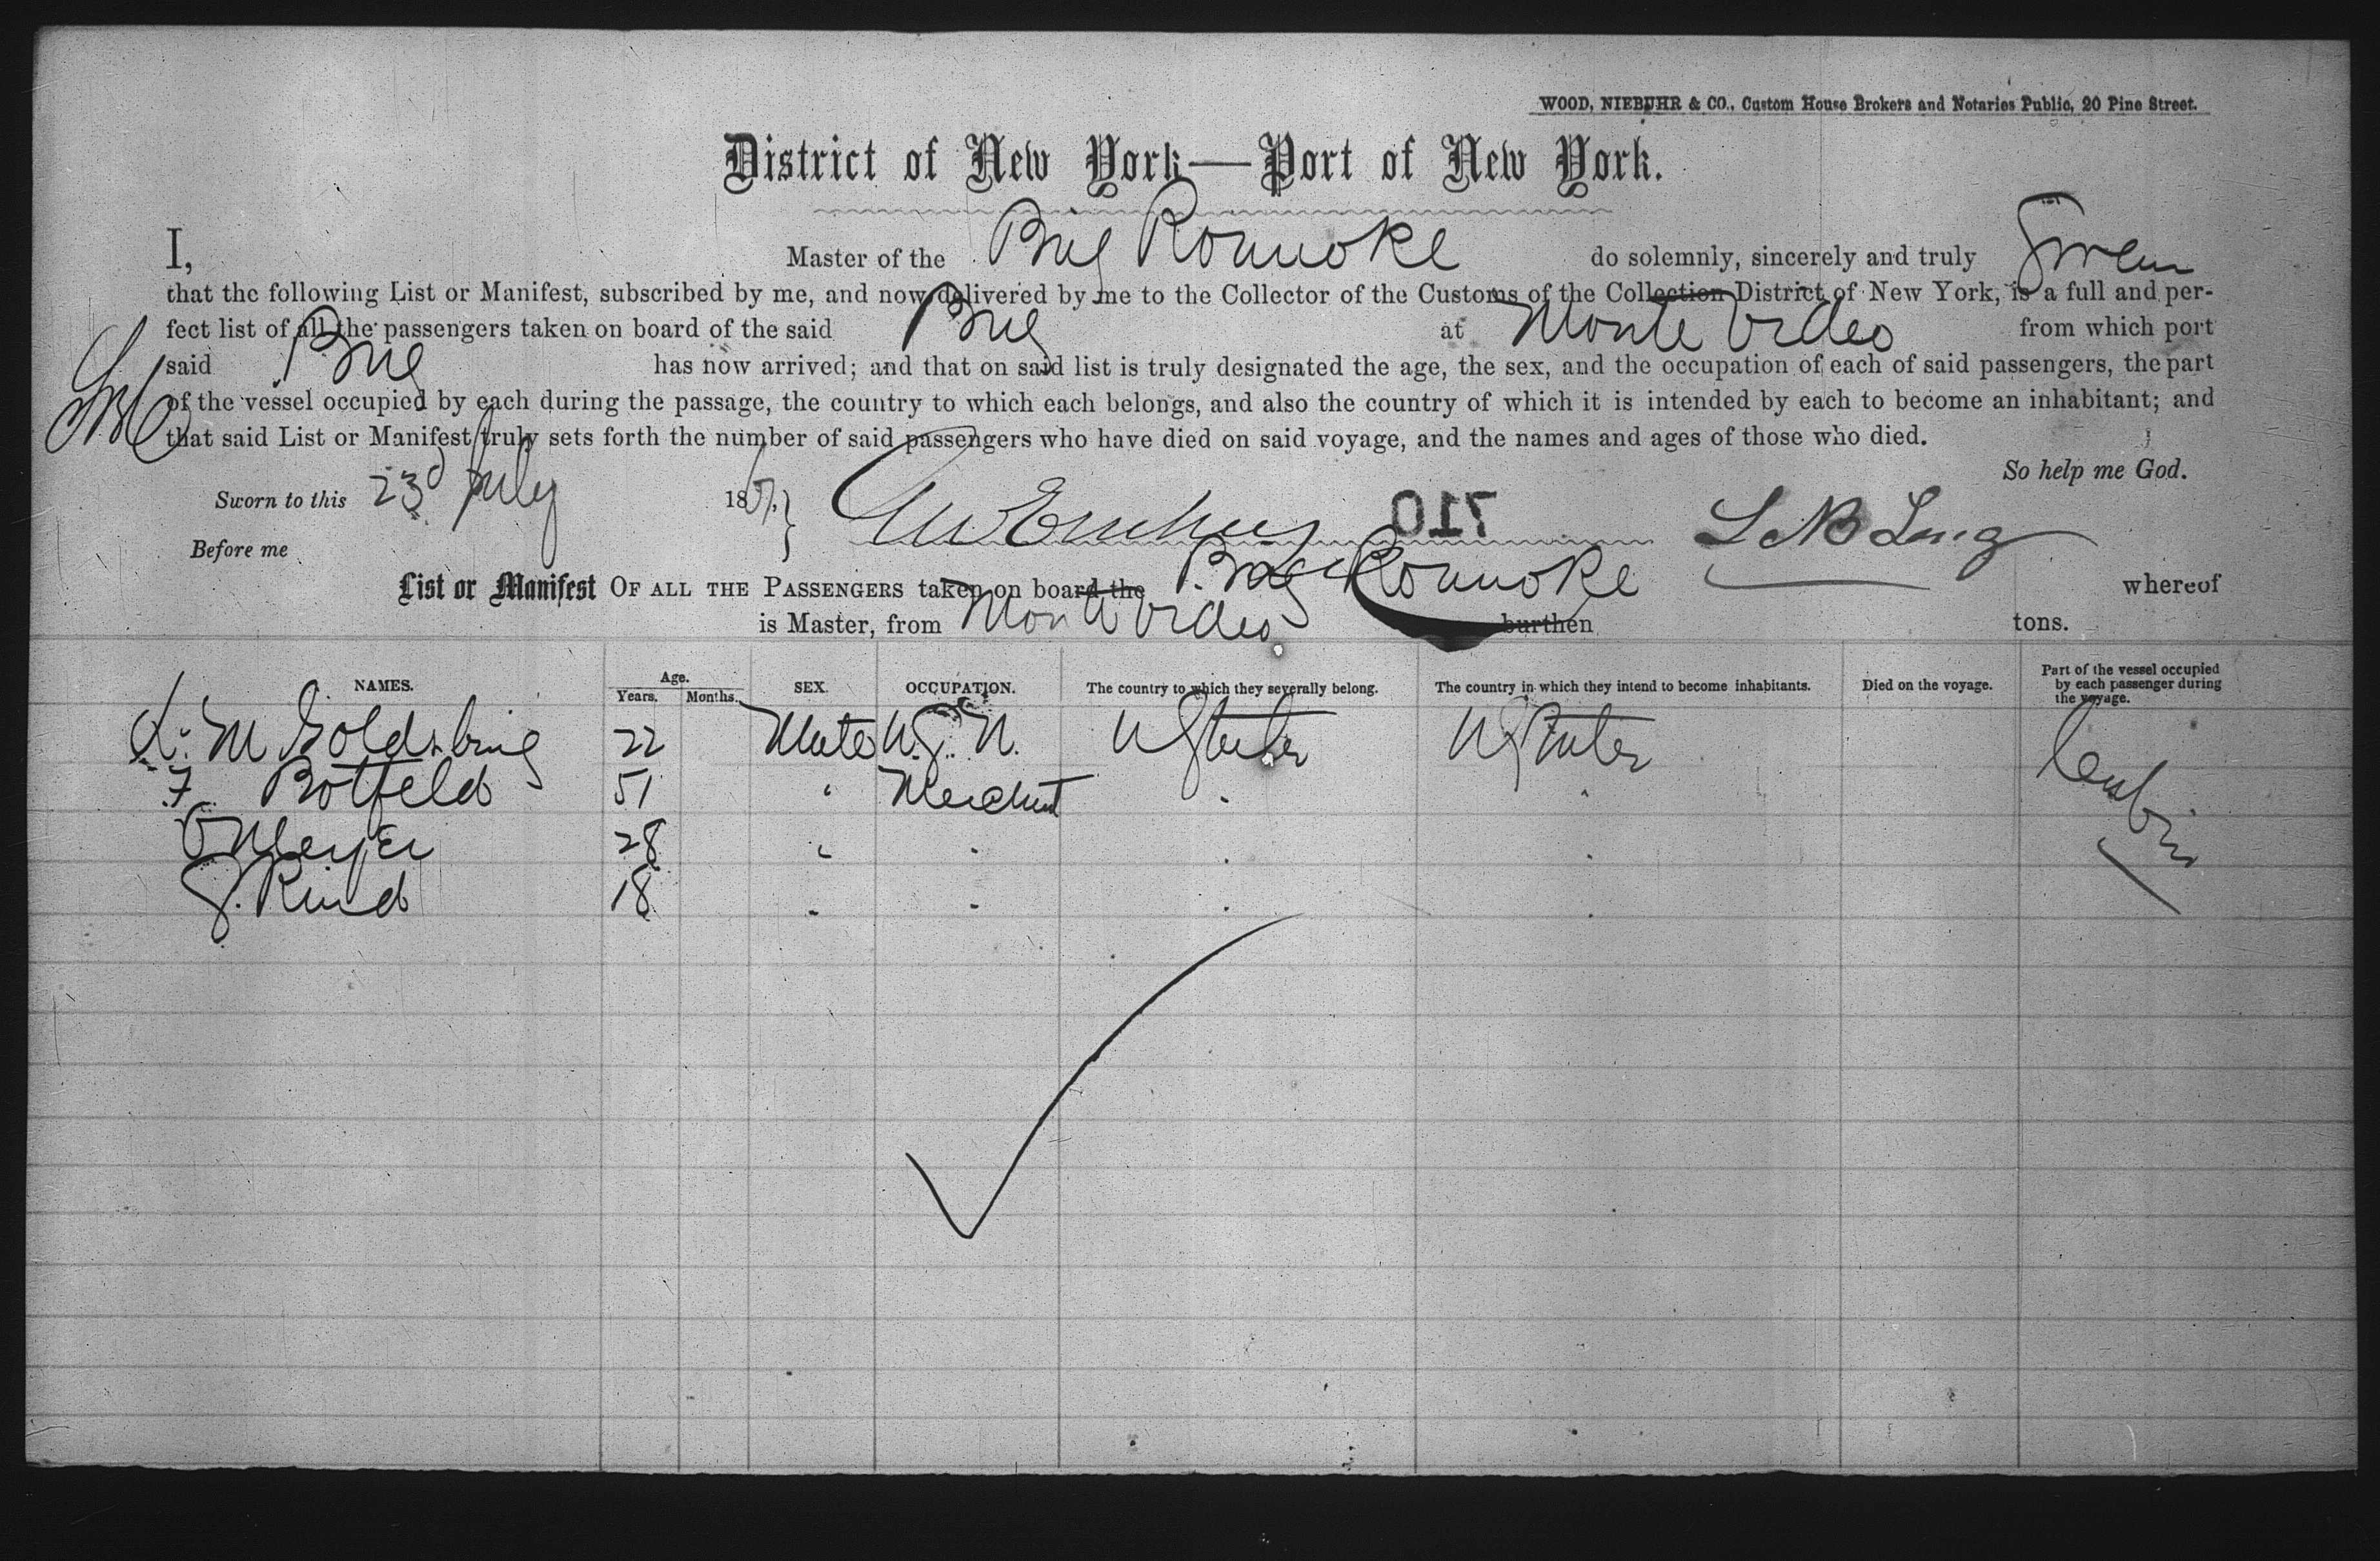 WOOD, NIEBUHR & CO., Custom House Brokers and Notaries Public, 20 Pine Street.
District of New York—Port of New York.
I, Master of the Brig Roanoke do solemnly, sincerely and truly Swear
that the following List or Manifest, subscribed by me, and now delivered by me to the Collector of the Customs of the Collection District of New York, is a full and per-
fect list of all the passengers taken on board of the said Brig at Monte Video from which port
said Brig has now arrived; and that on said list is truly designated the age, the sex, and the occupation of each of said passengers, the part
of the vessel occupied by each during the passage, the country to which each belongs, and also the country of which it is intended by each to become an inhabitant; and
that said List or Manifest truly sets forth the number of said passengers who have died on said voyage, and the names and ages of those who died.
So help me God.
Sworn to this 23d July 1867.
710
Before me
List or Manifest OF ALL THE PASSENGERS taken on board the Brig Roanoke whereof
is Master, from Monte Video burthen tons.
NAMES. Age. Years. Months. SEX. OCCUPATION. The country to which they severally belong. The country in which they intend to become inhabitants. Died on the voyage. Part of the vessel occupied by each passenger during the voyage.
M 22 Male U.S.N. U States U States Cabin
F Botfeld 51 " Merchant " "
Meyer 28 " " " "
18 " " " "